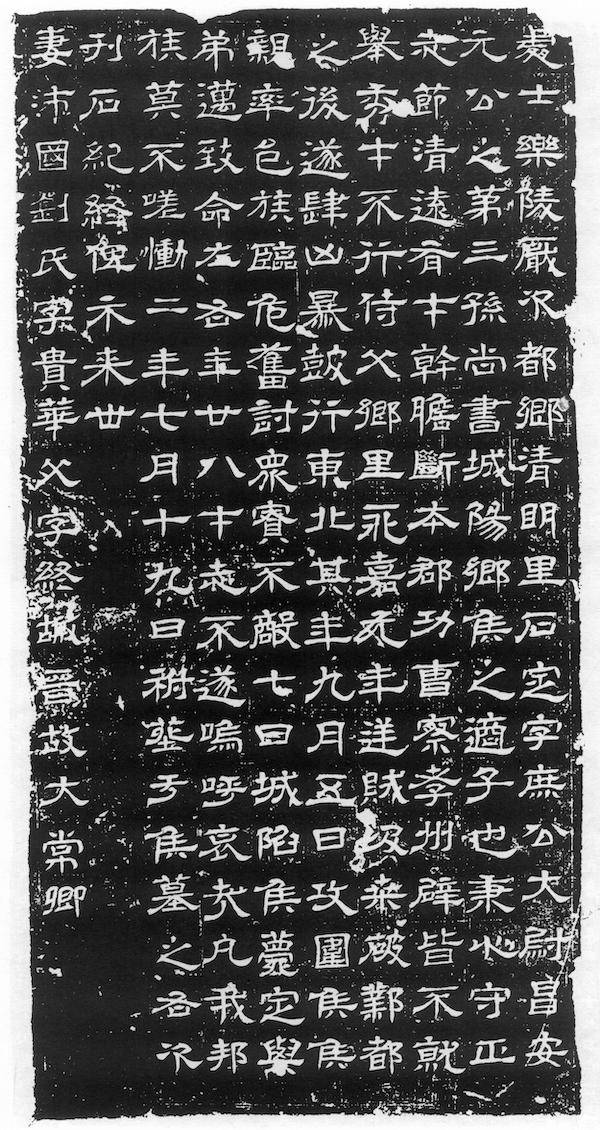 處士樂陵厭次都鄉清明里石定字庶公大尉昌安
元公之第三孫尚書城陽鄉侯之適子也秉心守正
志節清遠有才幹膽斷本郡功曹察孝州辟皆不就
舉秀才不行侍父鄉里永嘉元年逆賊汲桑破鄴都
之後遂肆凶暴鼓行東北其年九月五日攻圍侯侯
親率邑族臨危奮討眾寡不敵七日城陷侯薨定與
弟邁致命左右年廿八才志不遂嗚呼哀哉凡我邦
族莫不嗟慟二年七月十九日祔葬于侯墓之右次
刊石紀終俾示来世
妻沛國劉氏字貴華父字終嘏晉故大常卿